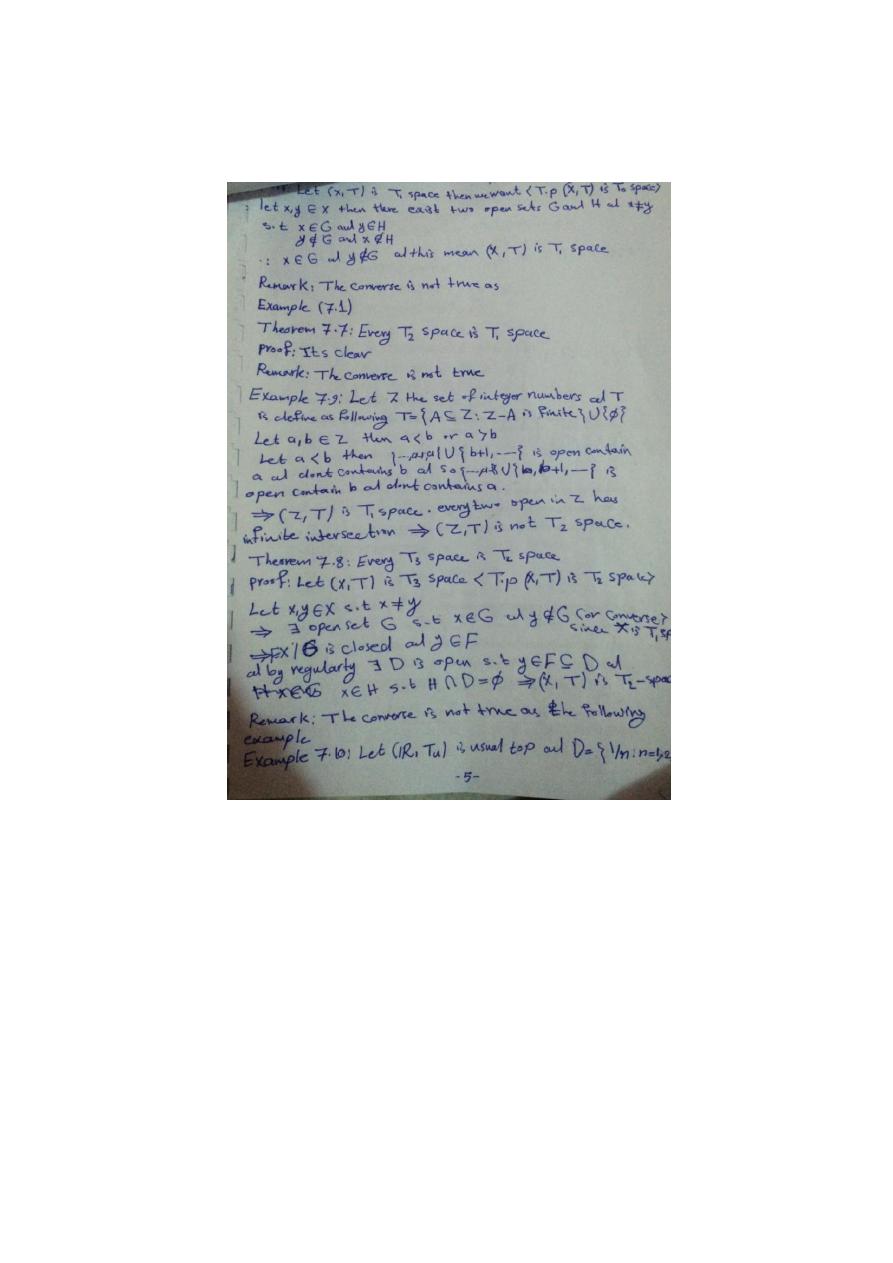 Let (X, T) is T₁ space then we want <T.p (X, T) is T₀ space>
let x,y ∈ X then there exist two open sets G and H ad x≠y
s.t x∈G and y∈H
y∉G and x∉H
∴ x∈G ad y∉G ad this mean (X, T) is T₁ space
Remark: The converse is not true as
Example (7.1)
Theorem 7.7: Every T₂ space is T₁ space
proof: Its clear
Remark: The converse is not true
Example 7.9: Let Z the set of integer numbers ad T
is define as following T={A⊆Z: Z-A is finite}∪{ø}
Let a,b ∈ Z then a<b or a>b
Let a<b then ∪{b+1,---} is open contain
a ad dont contains b ad so b+1,---} is
open contain b ad dont contains a.
⇒(Z,T) is T₁ space. every two open in Z has
infinite intersection ⇒ (Z,T) is not T₂ space.
Theorem 7.8: Every T₃ space is T₂ space
proof: Let (X,T) is T₃ space <T.p (X,T) is T₂ space>
Let x,y∈X s.t x≠y
⇒ ∃ open set G s.t x∈G ad y∉G (or converse)
since X is T₁ sp
X/G is closed ad y∈F
ad by regularty ∃ D is open s.t y∈F⊆D ad
x∈H s.t H∩D=ø ⇒(X,T) is T₂-spac
Remark: The converse is not true as the following
example
Example 7.10: Let (IR, Tu) is usual top ad D={1/n:n=1,2
-5-